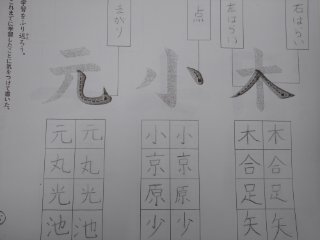 右はらい
左はらい
木
木合足矢
木合足矢
点
小
小京原少
小京原少
まがり
元
元丸光池
元丸光池
学習をふり返ろう。
これまでに学習したことに気をつけて書いた。